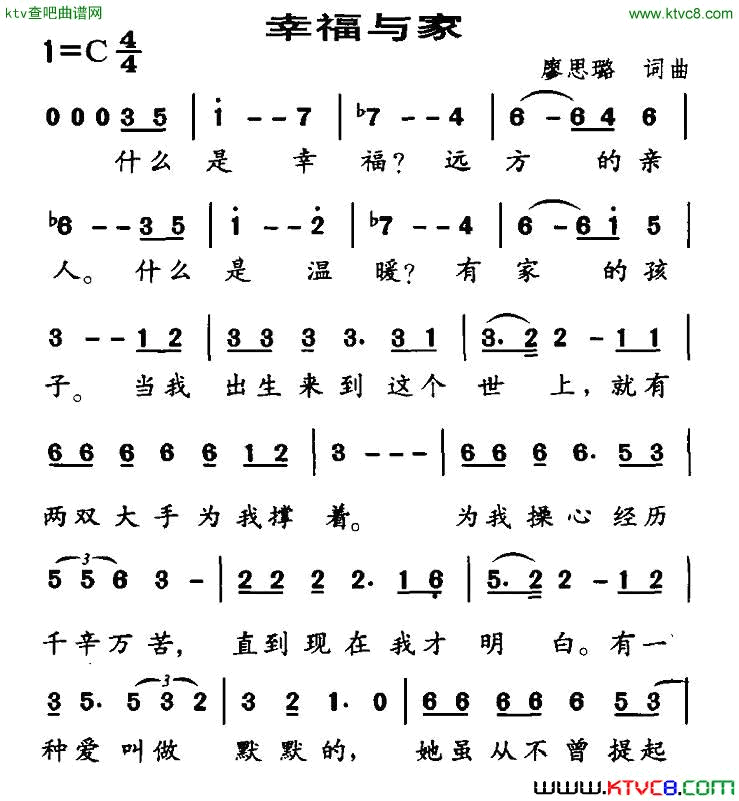 ktv查吧曲谱网 www.ktvc8.com
幸福与家
1=C 4/4
廖思璐 词曲
0 0 0 3 5 | i - - 7 | ♭7 - - 4 | 6 - 6 4 6 |
什么 是 幸 福？ 远 方 的 亲
♭6 - - 3 5 | i - - 2̇ | ♭7 - - 4 | 6 - 6 i 5 |
人。 什么 是 温 暖？ 有 家 的 孩
3 - - 1 2 | 3 3 3 3. 3 1 | 3. 2 2 - 1 1 |
子。 当我 出生来到 这个 世 上，就有
6 6 6 6 6 1 2 | 3 - - - | 6 6 6 6. 5 3 |
两双大手为我撑 着。 为我操心 经历
3 3
5 5 6 3 - | 2 2 2 2. 1 6̣ | 5. 2 2 - 1 2 |
千辛万苦， 直到现在我才 明 白。有一
3 5. 5 3 2 | 3 2 1. 0 | 6 6 6 6 6 5 3 |
种爱 叫做 默默的， 她虽从不曾提起
www.KTVC8.com